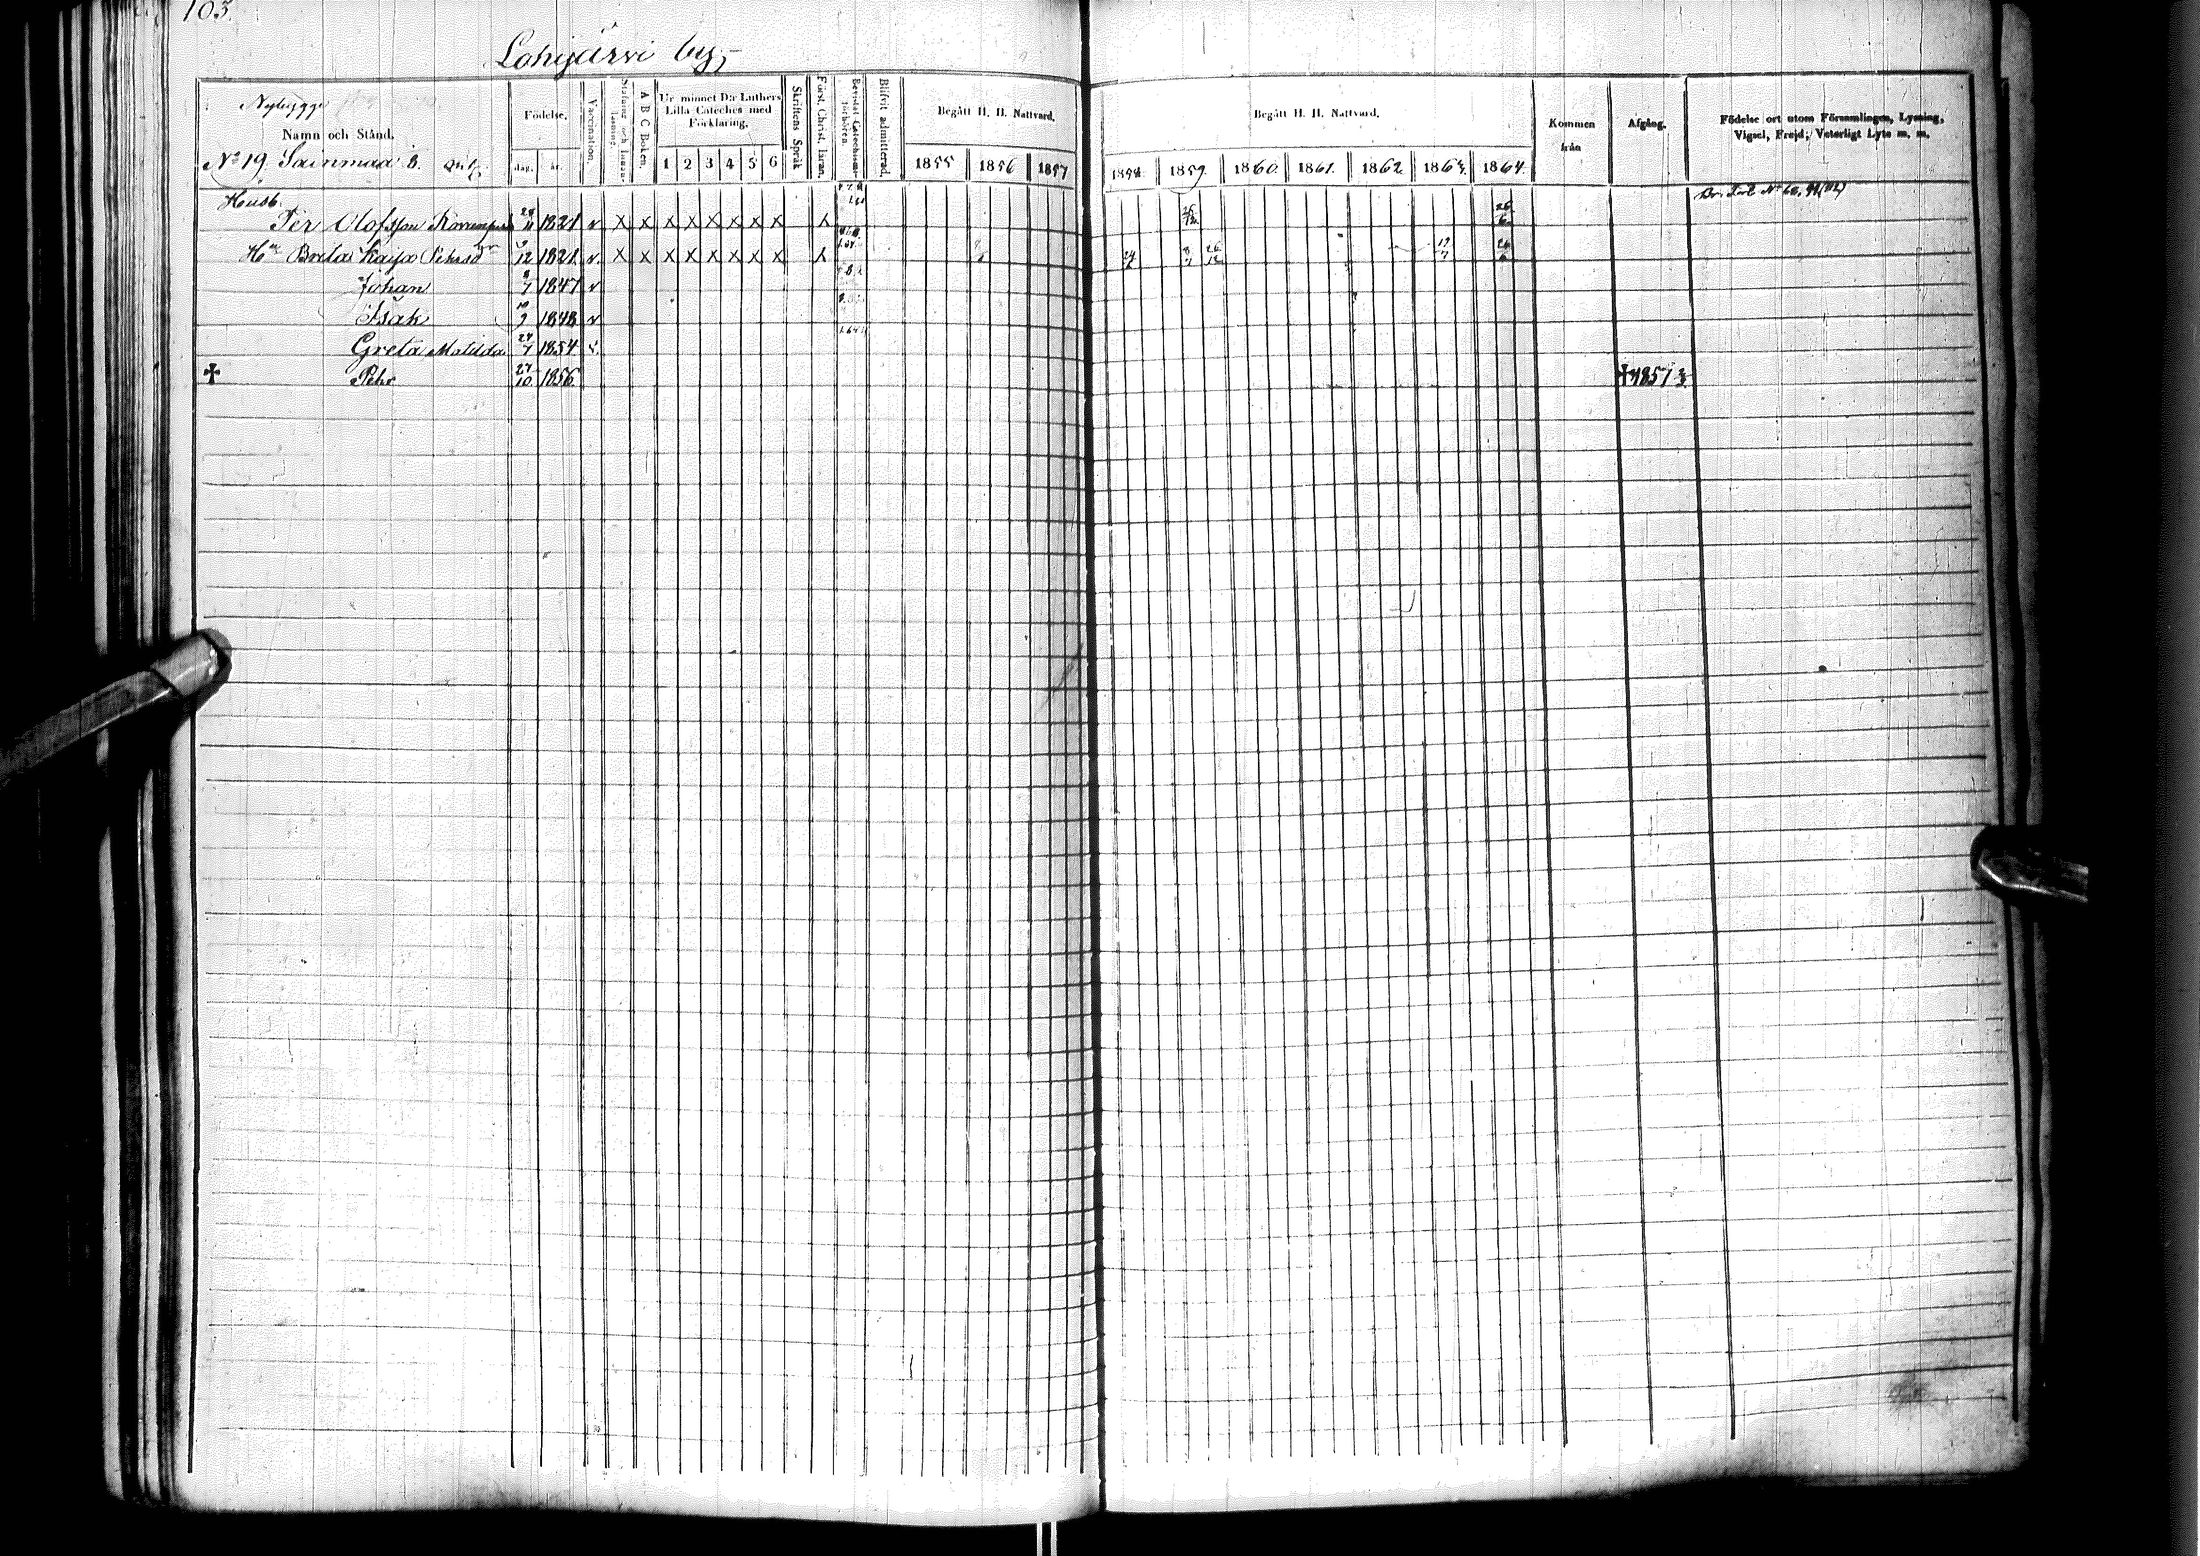 103.
Lohijärvi by,
Nybygge
Namn och Stånd.
Nº 19 Sainmaa B.
Födelse.
dag. år.
Vaccination.
A B C Boken.
Ur minnet D:r Luthers
Lilla Cateches med
Förklaring.
1 2 3 4 5 6
Skriftens Språk
Först. Christ. läran.
Bevistat Catechismi-
förhören.
Blifvit admitterad.
Begått H. H. Nattvard.
1855 1856 1857
Begått H. H. Nattvard.
1858 1859. 1860. 1861. 1862 1863. 1864.
Kommen
från
Afgång.
Födelse ort utom Församlingen, Lysning,
Vigsel, Frejd, Veterligt Lyte m. m.
Husb.
Per Olofsson 1821 v X X X X X X X X X 26/12 26/6
Hn Brita Kajsa Pehrsdr 9/12 1821. v. X X X X X X X X X 24 8/7 26/12 19/7 26/6
Johan 8/7 1847 v
Isak 9 1848 v
Greta Matilda 24/7 1854 v.
✝ Pehr 27/10 1856 ✝ 1857